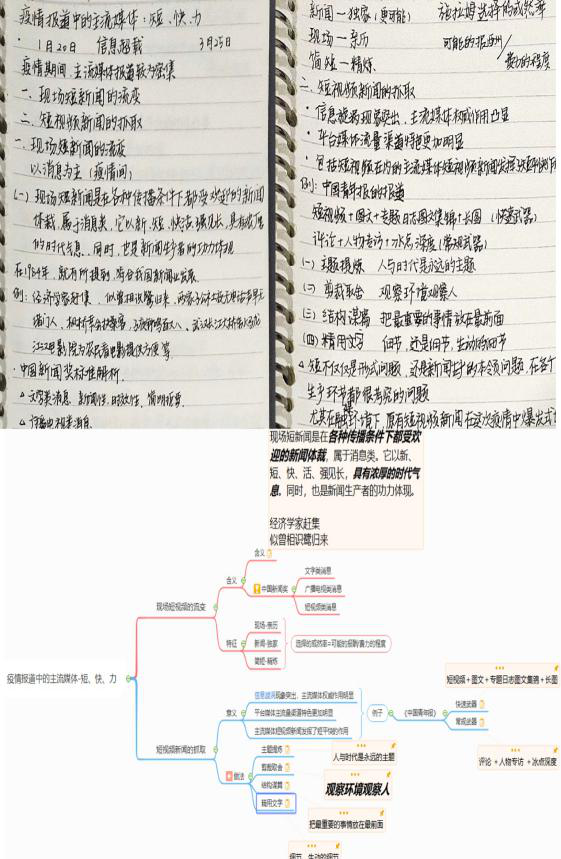 疫情报道中的主流媒体：短、快、力
1月20日 信息超载 3月25日
疫情期间，主流媒体报道较为密集
一、现场短新闻的流变
二、短视频新闻的抓取
一、现场短新闻的流变
以消息为主（疫情间）
(一) 现场短新闻是在各种传播条件下都受欢迎的新闻
体裁，属于消息类，它以新、短、快、活、强见长，具有浓厚
的时代气息，同时，也是新闻生产者的功力体现
例：经济学家赶集、似曾相识鹭归来
中国新闻奖标准解析
文字类消息
新闻—独家（更可能） 施拉姆选择的或然率
现场—亲历
可能的报酬/
费力的程度
简短—精炼
二、短视频新闻的抓取
信息疲诿现象突出，主流媒体权威作用凸显
平台媒体流量渠道特色更加明显
例：中国青年报的报道
短视频+图文+专题日志图文集辑+长图（快速武器）
评论+人物专访+冰点深度（常规武器）
(一) 主题提炼 人与时代是永远的主题
(二) 剪裁取舍 观察环境观察人
(三) 结构谋篇 把最重要的事情放在最前面
(四) 精用文字 细节，还是细节，生动的细节
短不仅仅是形式问题，还是新闻生产的本领问题，在各个
现场短新闻是在各种传播条件下都受欢
迎的新闻体裁，属于消息类。它以新、
短、快、活、强见长，具有浓厚的时代气
息。同时，也是新闻生产者的功力体现。
经济学家赶集
似曾相识鹭归来
疫情报道中的主流媒体-短、快、力
现场短视频的流变
含义
含义
中国新闻奖
文字类消息
广播电视类消息
短视频类消息
特征
现场-亲历
新闻-独家
简短-精炼
选择的或然率=可能的报酬/费力的程度
短视频新闻的抓取
意义
信息疲诿现象突出，主流媒体权威作用明显
平台媒体主流量渠道特色更加明显
主流媒体短视频新闻发挥了短平快的作用
例子
《中国青年报》
快速武器
常规武器
短视频＋图文＋专题日志图文集辑＋长图
评论 ＋人物专访 ＋冰点深度
做法
主题提炼
剪裁取舍
结构谋篇
精用文字
人与时代是永远的主题
观察环境观察人
把最重要的事情放在最前面
细节，生动的细节